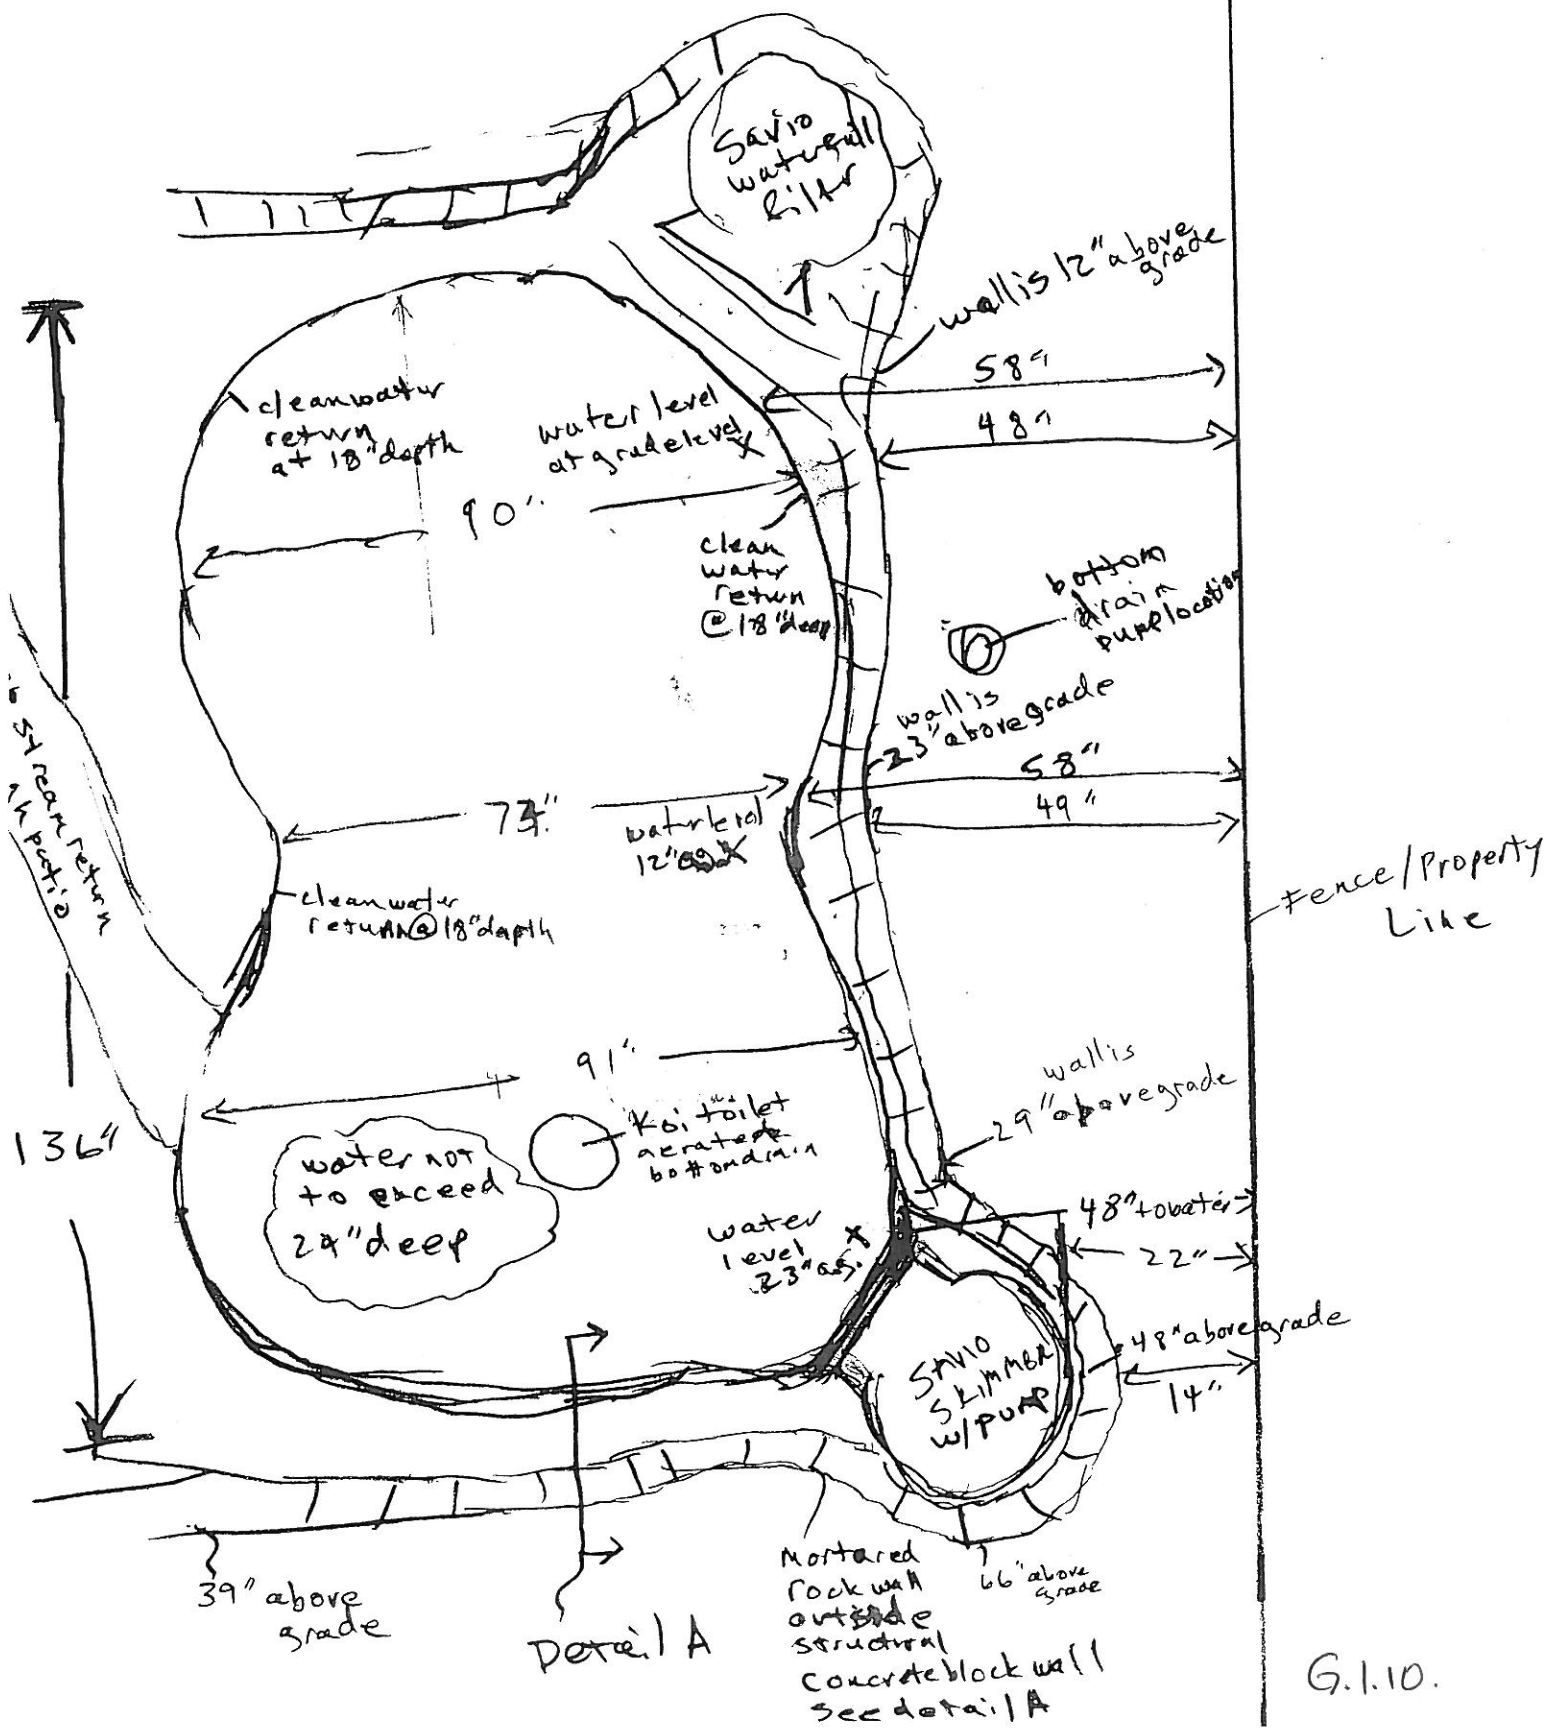 Savio
waterfall
filter
wall is 12" above
grade
58"
48"
clean water
return
at 18" depth
water level
at grade level X
90"
clean
water
return
@ 18" deep
bottom
drain
pump location
wall is
23" above grade
58"
49"
stream return
patio
73"
water level
12" ag. X
Fence/Property
Line
clean water
return @ 18" depth
91"
wall is
29" above grade
136"
Koi toilet
aerated
bottom drain
water not
to exceed
24" deep
48" to water
22"
water
level X
23" ag.
SAVIO
SKIMMER
w/pump
48" above grade
14"
39" above
grade
Detail A
Mortared
rock wall
outside
structural
concrete block wall
see detail A
66" above
grade
G.1.10.